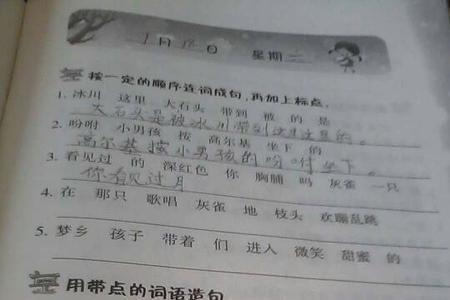 1月 日 星期二
按一定的顺序连词成句，再加上标点。
1. 冰川 这里 大石头 带到 被 的 是
大石头是被冰川带到这里的。
2. 吩咐 小男孩 按 高尔基 坐下 的
高尔基按小男孩的吩咐坐下。
3. 看见过 的 深红色 你 胸脯 吗 灰雀 一只
你看见过
4. 在 那只 歌唱 灰雀 地 枝头 欢蹦乱跳
5. 梦乡 孩子 带着 们 进入 微笑 甜蜜 的
用带点的词语造句